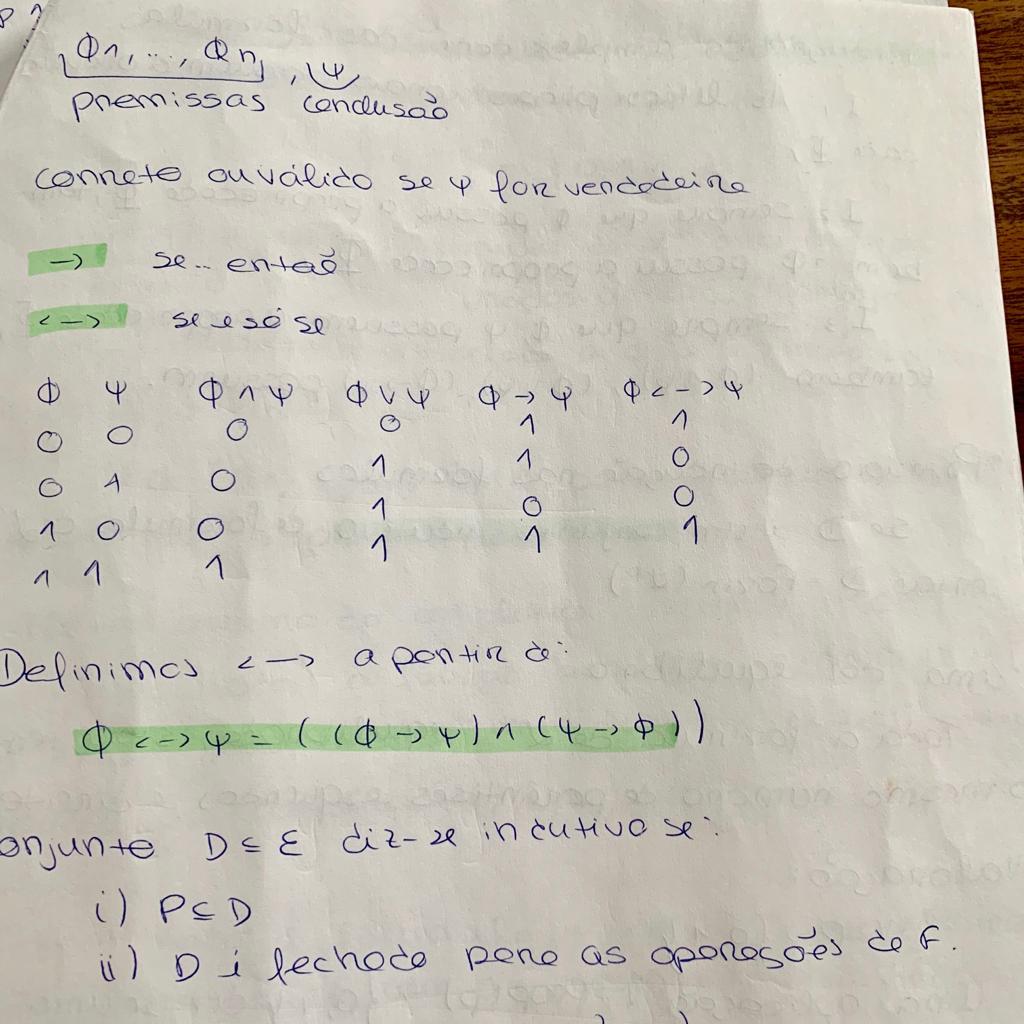 P 1
Φ1, ..., Φn, ψ
premissas conclusão
correto ou válido se ψ for verdadeira
→ se.. então
<–> se e só se
Φ ψ Φ ∧ ψ Φ ∨ ψ Φ → ψ Φ <–> ψ
0 0 0 0 1 1
0 1 0 1 1 0
1 0 0 1 0 0
1 1 1 1 1 1
Definimos <–> a partir de:
Φ <–> ψ = ((Φ → ψ) ∧ (ψ → Φ))
onjunto D ⊆ ε diz-se indutivo se:
i) P ⊆ D
ii) D é fechado para as operações de F.